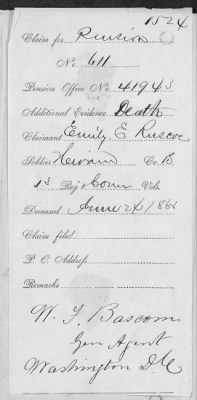 1524
Claim for Pension
No. 611
Pension Office No. 41943
Additional Evidence Death
Claimant Emily E Ruscoe
Soldier Hiram Co. B
13 Reg't Conn Vols.
Deceased June 24 186
Claim filed
P. O. Address
Remarks
W. F. Bascom
Gen Agent
Washington D.C